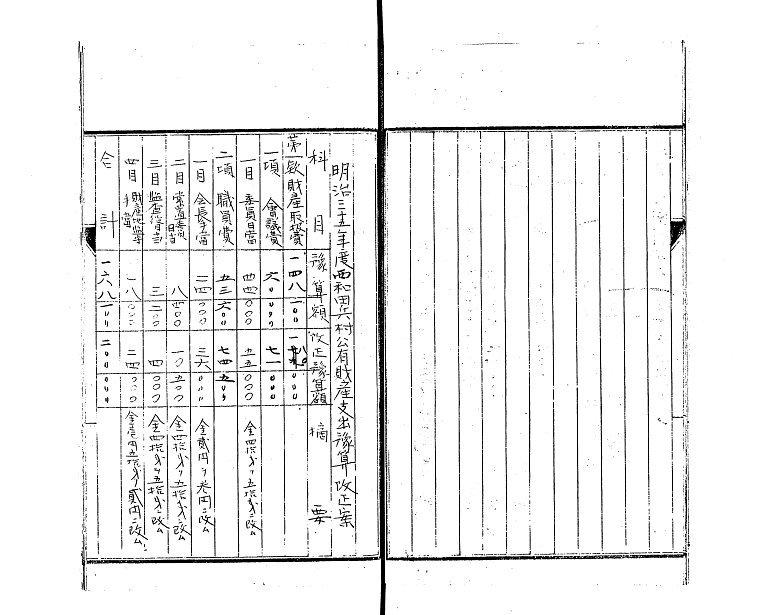 明治三十五年度西和田六村公有財産支出豫算改正案
科 目 豫算額 改正豫算額 摘 要
第一款 財産取扱費 一四八 一〇〇 〇〇〇
一項 會議費 六〇 〇〇〇 七一 〇〇〇
一目 委員日當 四四 〇〇〇 五五 〇〇〇 金四拾戔ヲ五拾戔ニ改ム
二項 職員費 五三 六〇〇 七四 五〇〇
一目 会長手當 二四 〇〇〇 三六 〇〇〇 金貳円ヲ参円ニ改ム
二目 常置委員日當 八 四〇〇 一〇 五〇〇 金四拾戔ヲ五拾戔ニ改ム
三目 三 二〇〇 四 〇〇〇 金四拾戔ヲ五拾戔ニ改ム
四目 手當 一八 〇〇〇 二四 〇〇〇 金壱円五拾戔ヲ貳円ニ改ム
合 計 一六八 一〇〇 二〇〇 〇〇〇